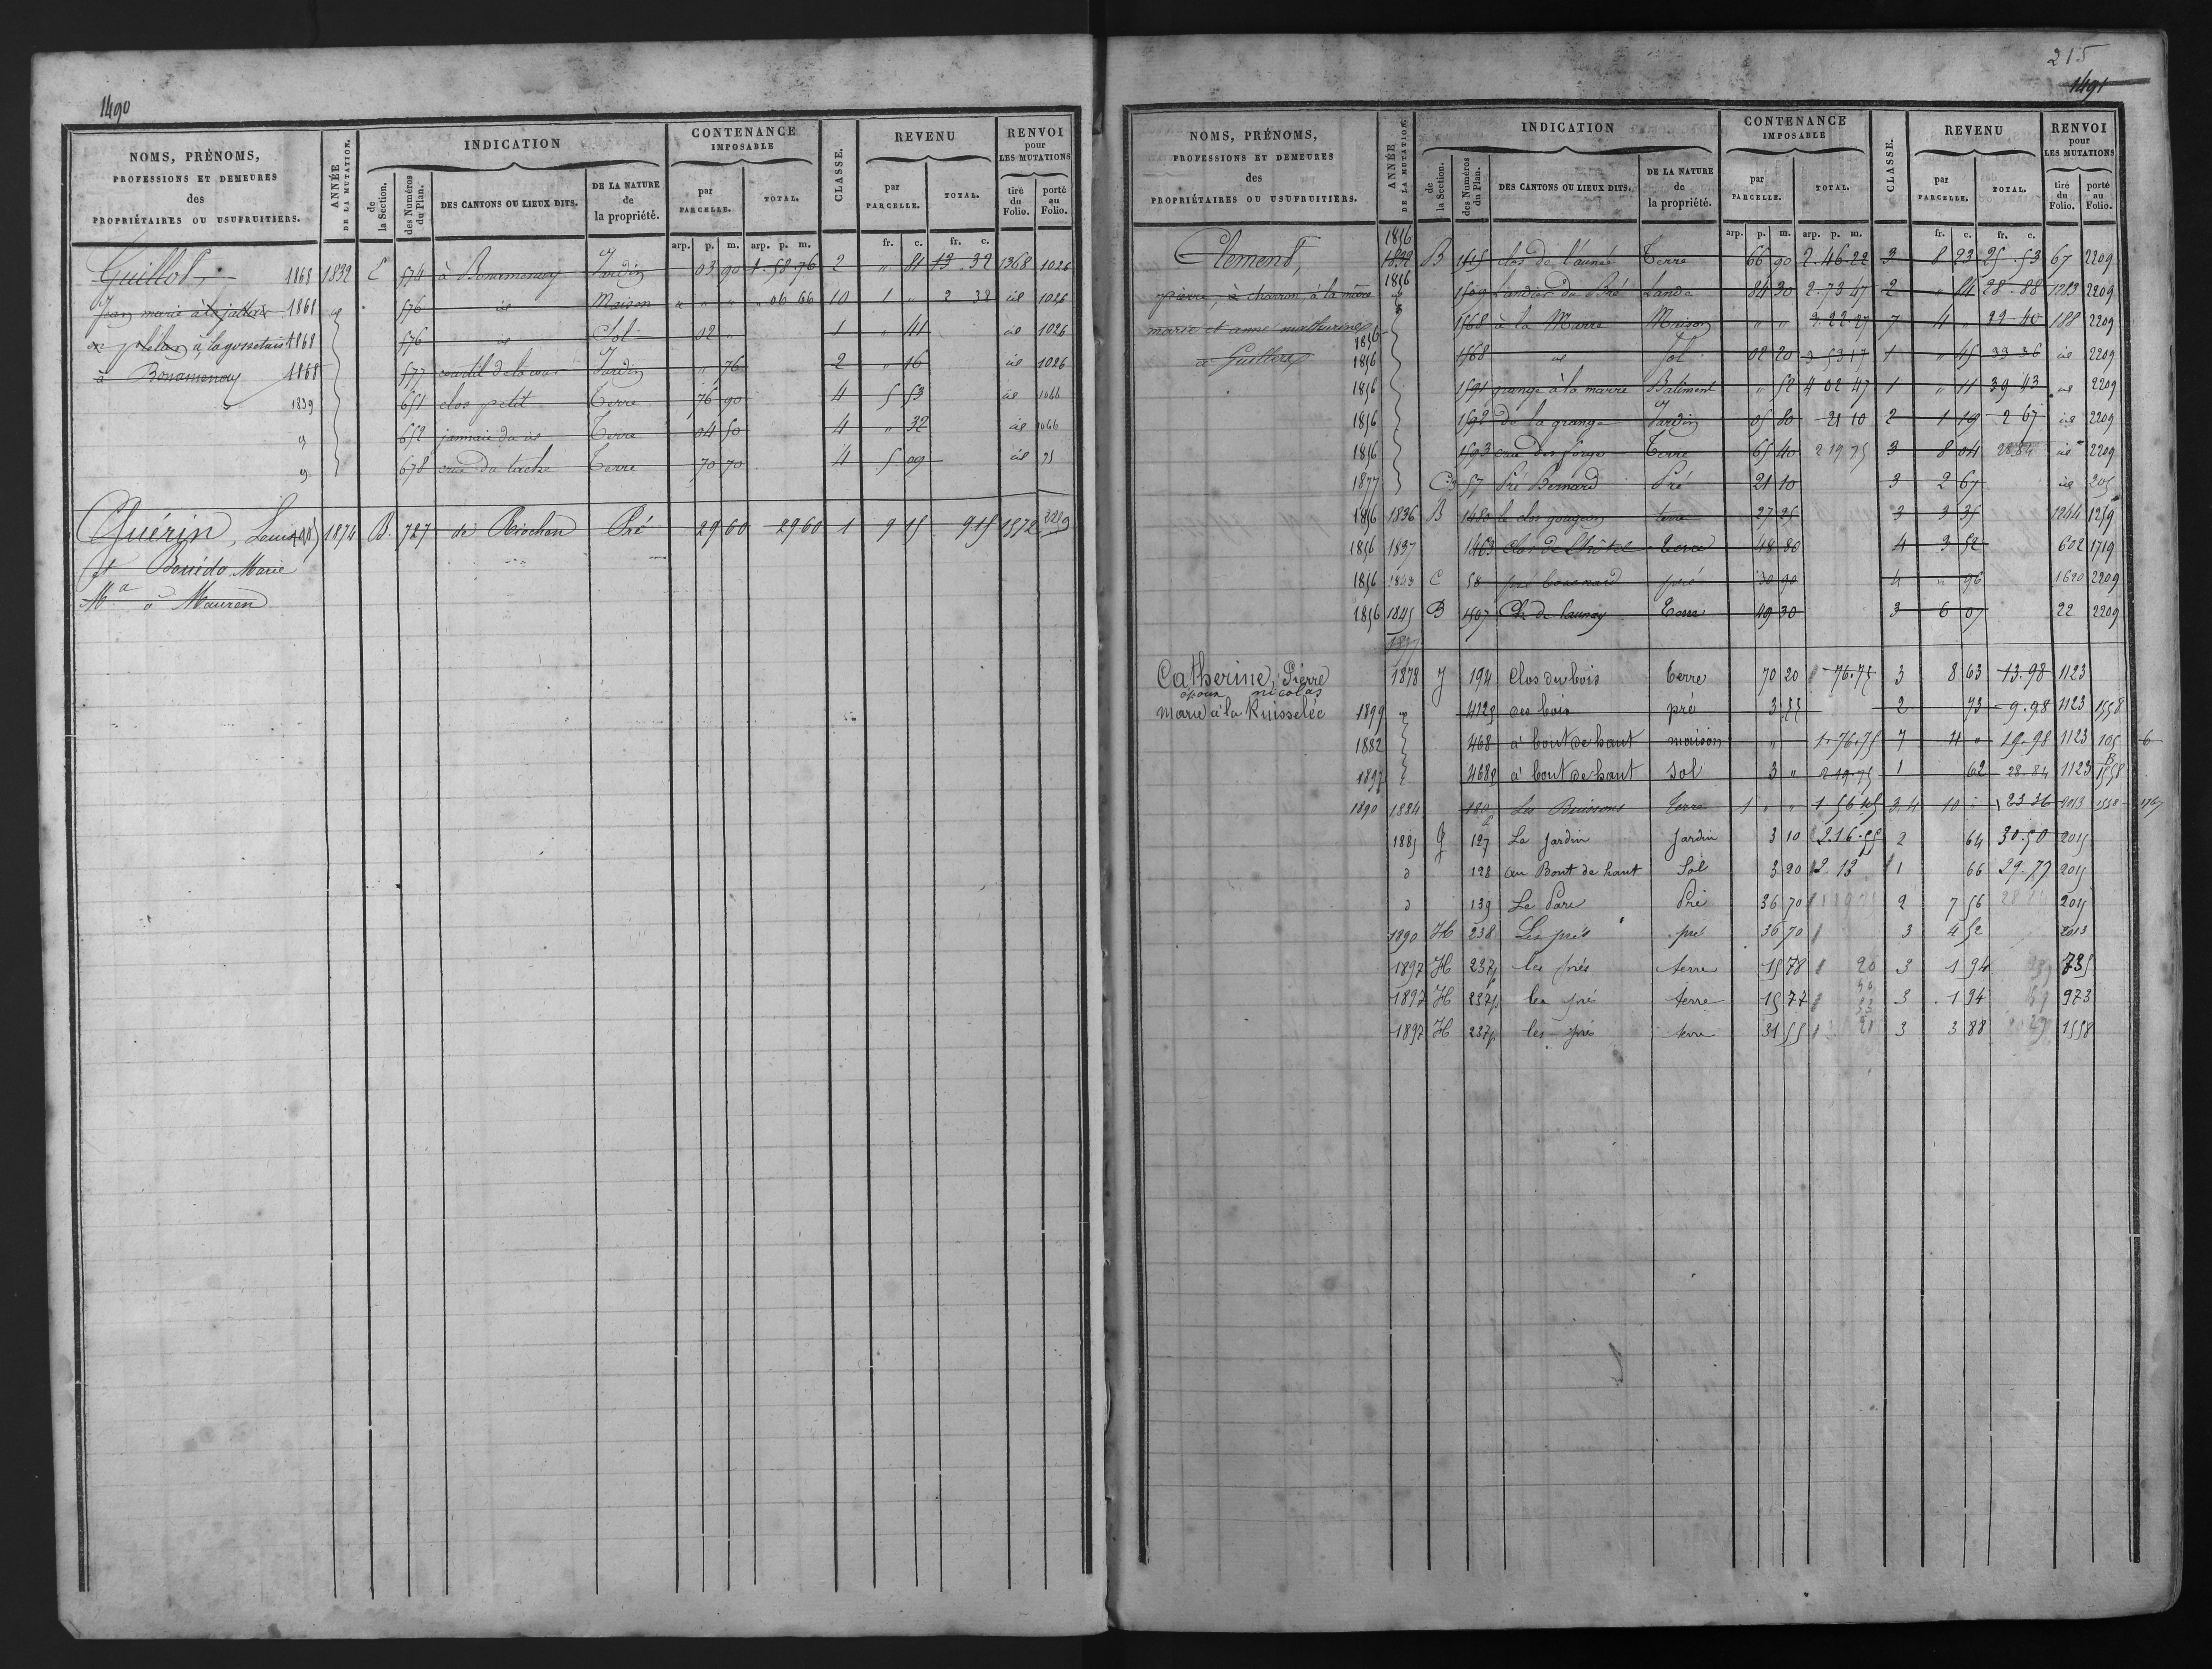 1490
NOMS, PRÉNOMS,
PROFESSIONS ET DEMEURES
des
PROPRIÉTAIRES OU USUFRUITIERS.
ANNÉE
DE LA MUTATION.
INDICATION
de
la Section.
des Numéros
du Plan.
DES CANTONS OU LIEUX DITS.
DE LA NATURE
de
la propriété.
CONTENANCE
IMPOSABLE
par
PARCELLE.
TOTAL.
CLASSE.
REVENU
par
PARCELLE.
TOTAL.
RENVOI
pour
LES MUTATIONS
tiré
du
Folio.
porté
au
Folio.
arp. p. m. arp. p. m. fr. c. fr. c.
Guillot, 1868 1832 E 574 à Jardin 03 90 1.58.76 2 " 81 13.32 1368 1026
Jean marie 1861 id 576 id Maison " " " " 06 66 10 1 " 2 38 id 1026
1868 576 id Sol 02 " 1 " 41 id 1026
à Bonamenay 1868 577 courtil de la cour Jardin " 76 2 " 16 id 1026
1839 651 clos petit Terre 76 90 4 5 53 id 1066
652 Terre 04 50 4 " 32 id 1066
678 Terre 70 70 4 5 09 id 75
Guérin, Louis 1874 B. 727 de Riochan Pré 29 60 29 60 1 9 15 9 15 1372 2219
et Bouédo Marie
Md à Mauron
215
1491
NOMS, PRÉNOMS,
PROFESSIONS ET DEMEURES
des
PROPRIÉTAIRES OU USUFRUITIERS.
ANNÉE
DE LA MUTATION.
INDICATION
de
la Section.
des Numéros
du Plan.
DES CANTONS OU LIEUX DITS.
DE LA NATURE
de
la propriété.
CONTENANCE
IMPOSABLE
par
PARCELLE.
TOTAL.
CLASSE.
REVENU
par
PARCELLE.
TOTAL.
RENVOI
pour
LES MUTATIONS
tiré
du
Folio.
porté
au
Folio.
arp. p. m. arp. p. m. fr. c. fr. c.
Clement, 1856 1832 B 1515 clos de l'aunée Terre 66 90 2.46.22 3 8 23 25.53 67 2209
pierre, à charron, à la mare 1856 1509 Landier du Pré Lande 84 30 2.73 47 2 " 84 28.88 1283 2209
marie et anne mathurine 1568 à la Marre Maison " " 3.22.27 7 4 " 29 40 188 2209
à Guilliers 1856 1856 1568 id Sol 02 20 3 53 17 1 " 45 33 36 id 2209
1856 1591 grange à la marre Batiment " 52 4 02 47 1 " 11 39 43 id 2209
1856 1592 de la grange Jardin 05 80 21 10 2 1 19 2 67 id 2209
1856 1593 Terre 65 40 2 19 75 3 8 04 28.84 id 2209
1877 C 57 Pré Bernard Pré 21 10 3 2 67 id 205
1856 1836 B 1480 le clos terre 27 25 3 3 35 1244 1259
1856 1837 1463 clos de l'hôtel terre 48 80 4 3 52 602 1719
1856 1843 C 58 pré pré 30 90 4 " 96 1620 2209
1856 1845 B 1507 Ch. de launay Terre 49 30 3 6 07 22 2209
1877
Catherine, Pierre 1878 J 194 Clos du bois terre 70 20 76.75 3 8 63 13.98 1123
époux nicolas
Marie à la Ruisselée 1899 412p des bois pré 3 55 2 73 9.98 1123 1558
1882 468 à bout de haut maison " 1.76.75 7 4 " 19.98 1123 105 6
1897 468p à bout de haut sol 3 " 2 19.75 1 62 28.84 1123 1558
1890 1884 180p Les Buissons Terre 1 " " 1 56 45 3.4 10 23 36 2013 1558 1767
1885 G 127 Le Jardin Jardin 3 10 2.16.55 2 64 30.50 2015
d 128 au Bout de haut Sol 3 20 2.13 1 66 29.77 2015
d 139 Le Parc Pré 36 70 2 7 56 2015
1890 H 238 Les prés pré 36 70 3 4 52 2013
1897 H 237p les prés terre 15 78 20 3 1 94 735
1897 H 237p les prés terre 15 77 3 1 94 973
1897 H 237p les prés terre 31 55 3 3 88 1558